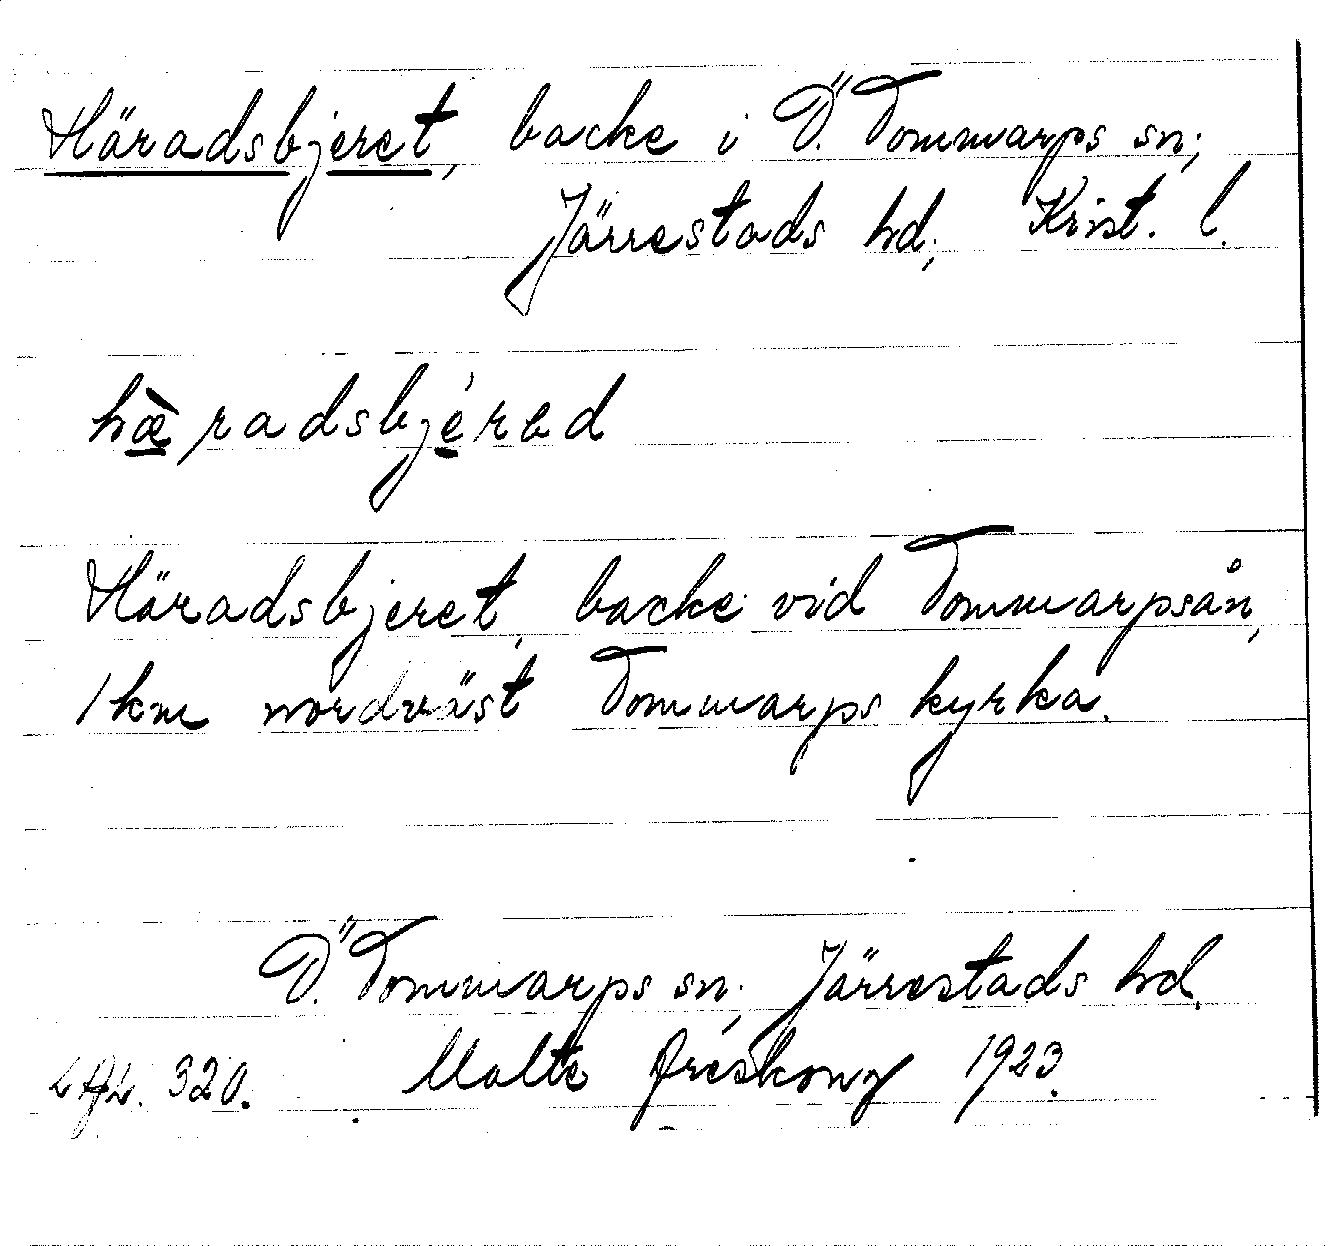 Häradsbjeret, backe i Ö. Tommarps sn;
Järrestads hd; Krist. l.
hæ̀radsbjérəd
Häradsbjeret, backe vid Tommarpsån,
1 km nordväst Tommarps kyrka.
Ö. Tommarps sn; Järrestads hd.
320. Malte 1923.